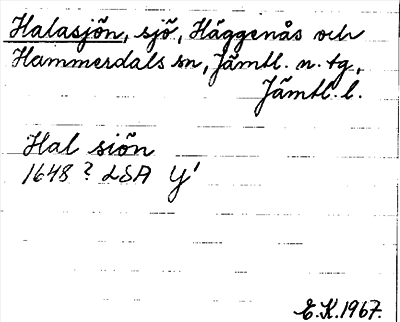 Halasjön, sjö, Häggenås och
Hammerdals sn, Jämtl. n. tg,
Jämtl. l.
Hal siön
1648? LSA Y'
E.K. 1967.